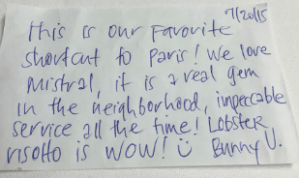 7/20/15
This is our favorite
shortcut to Paris! We love
Mistral, it is a real gem
in the neighborhood, impeccable
service all the time! Lobster
risotto is WOW! Bunny U.